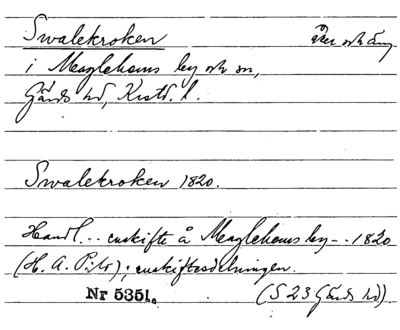 Swalekroken åker och äng
i Maglehems by och sn,
Gärds hd, Krstd. l.
Swalekroken 1820.
Handl... enskifte å Maglehems by -- 1820
(H. A. Pihl); enskiftesdelningen.
Nr 5351. (S 23 Gärds hd)